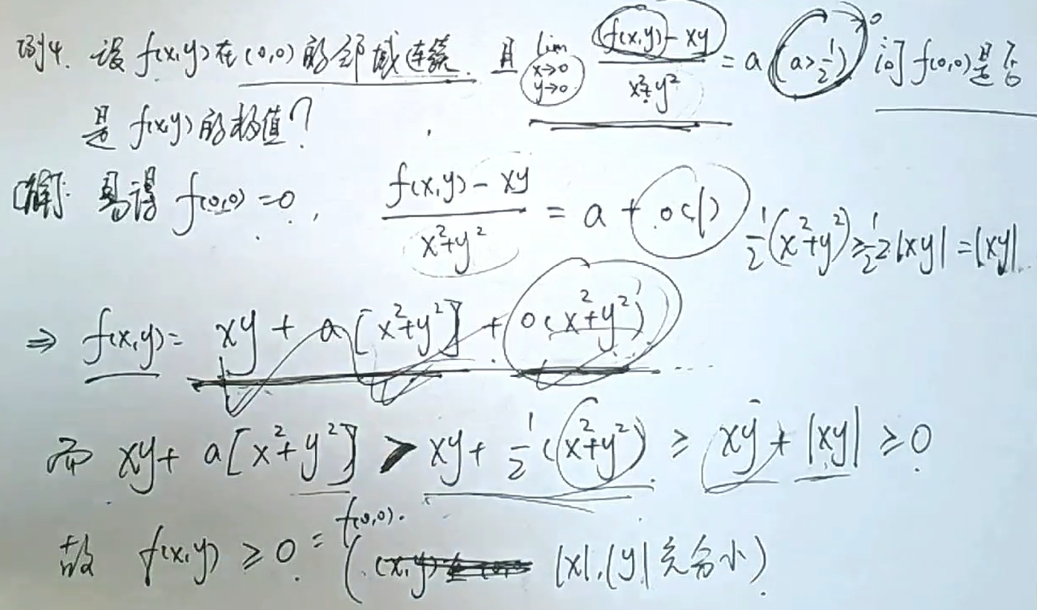 例4. 设 f(x,y) 在 (0,0) 的邻域连续, 且 lim x→0 y→0 (f(x,y) - xy)/(x²+y²) = a (a>1/2) 问 f(0,0) 是否
是 f(x,y) 的极值?
[解]: 易得 f(0,0) = 0, (f(x,y) - xy)/(x²+y²) = a + o(1) 1/2(x²+y²) ≥ 1/2 2|xy| = |xy|
⇒ f(x,y) = xy + a[x²+y²] + o(x²+y²)
而 xy + a[x²+y²] > xy + 1/2(x²+y²) ≥ xy + |xy| ≥ 0
故 f(x,y) ≥ 0 = f(0,0). (|x|,|y| 充分小)